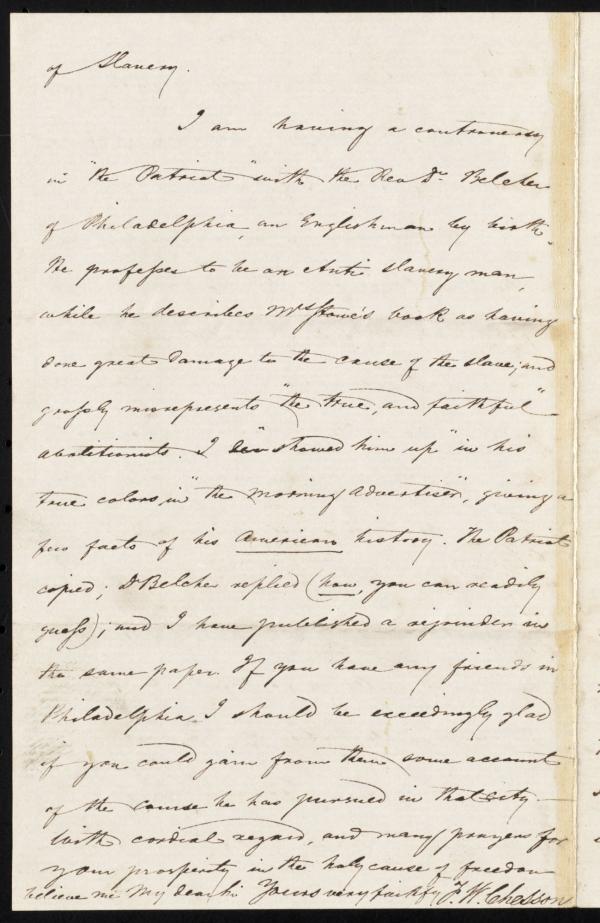 of Slavery.
I am having a controversy
in "the Patriot" with the Rev Dr. Belcher
of Philadelphia, an Englishman by birth.
He professes to be an Anti Slavery man,
while he describes Mrs Stowe's book as having
done great damage to the cause of the slave; and
grossly misrepresents "the true, and faithful"
abolitionists. I "showed him up" in his
true colors, in "the Morning Advertiser", giving a
few facts of his American history. The Patriot
copied; Dr Belcher replied (how, you can readily
guess); and I have published a rejoinder in
the same paper. If you have any friends in
Philadelphia I should be exceedingly glad
if you could gain from them some account
of the course he has pursued in that city —
With cordial regard, and many prayers for
your prosperity in the holy cause of freedom
believe me My dear Sir Yours very faithfy F. W. Chesson